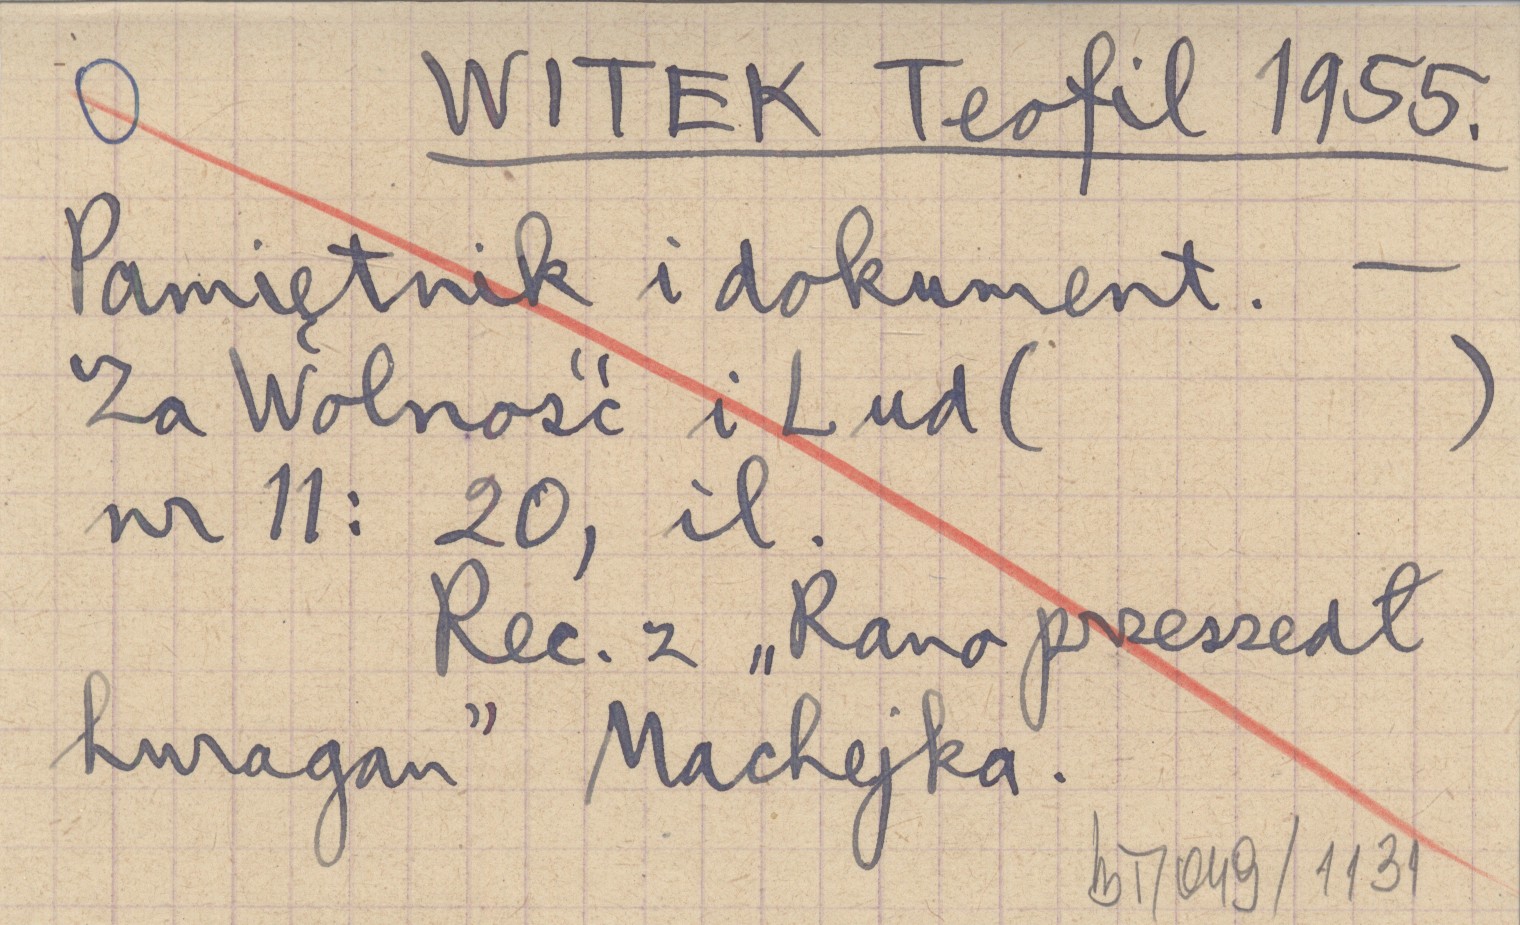 O WITEK Teofil 1955.
Pamiętnik i dokument. —
Za Wolność i Lud ( )
nr 11: 20, il.
Rec. z „Rano przeszedł
huragan” Machejka.
bT/049/1131